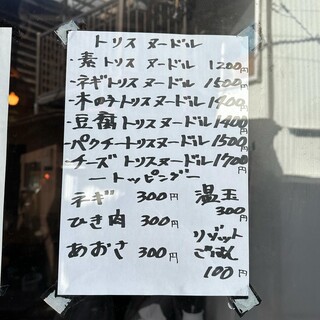 トリスヌードル
・素トリスヌードル 1200円
・ネギトリスヌードル 1500円
・木の子トリスヌードル 1400円
・豆腐トリスヌードル 1400円
・パクチートリスヌードル 1500円
・チーズトリスヌードル 1700円
ートッピングー
ネギ 300円 温玉 300円
ひき肉 300円 リゾットごはん
あおさ 300円 100円